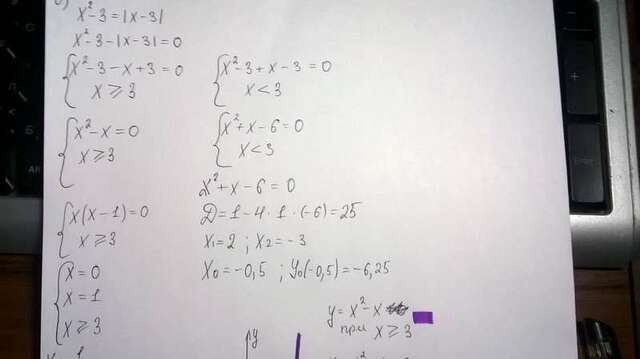 x² - 3 = |x - 3|
x² - 3 - |x - 3| = 0
{ x² - 3 - x + 3 = 0
x ⩾ 3
{ x² - 3 + x - 3 = 0
x < 3
{ x² - x = 0
x ⩾ 3
{ x² + x - 6 = 0
x < 3
x² + x - 6 = 0
{ x(x - 1) = 0
x ⩾ 3
D = 1 - 4 · 1 · (-6) = 25
x₁ = 2 ; x₂ = -3
{ x = 0
x = 1
x ⩾ 3
x₀ = -0,5 ; y₀(-0,5) = -6,25
y = x² - x
при x ⩾ 3
y